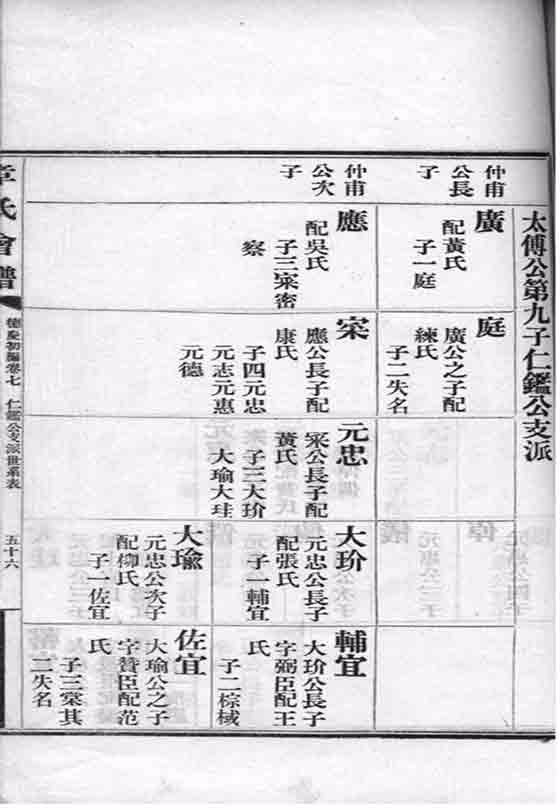 太傅公第九子仁鑑公支派
仲甫
公長
子
廣
配黃氏
子一庭
庭
廣公之子配
練氏
子二失名
仲甫
公次
子
應
配吳氏
子三寀密
察
寀
應公長子配
康氏
子四元忠
元志元惠
元德
元忠
寀公長子配
黃氏
子三大玠
大瑜大珪
大玠
元忠公長子
配張氏
子一輔宜
輔宜
大玠公長子
字弼臣配王
氏
子二棕棫
大瑜
元忠公次子
配柳氏
子一佐宜
佐宜
大瑜公之子
字贊臣配范
氏
子三棠其
二失名
章氏會譜
德慶初編卷七
仁鑑公支派世系表
五十六